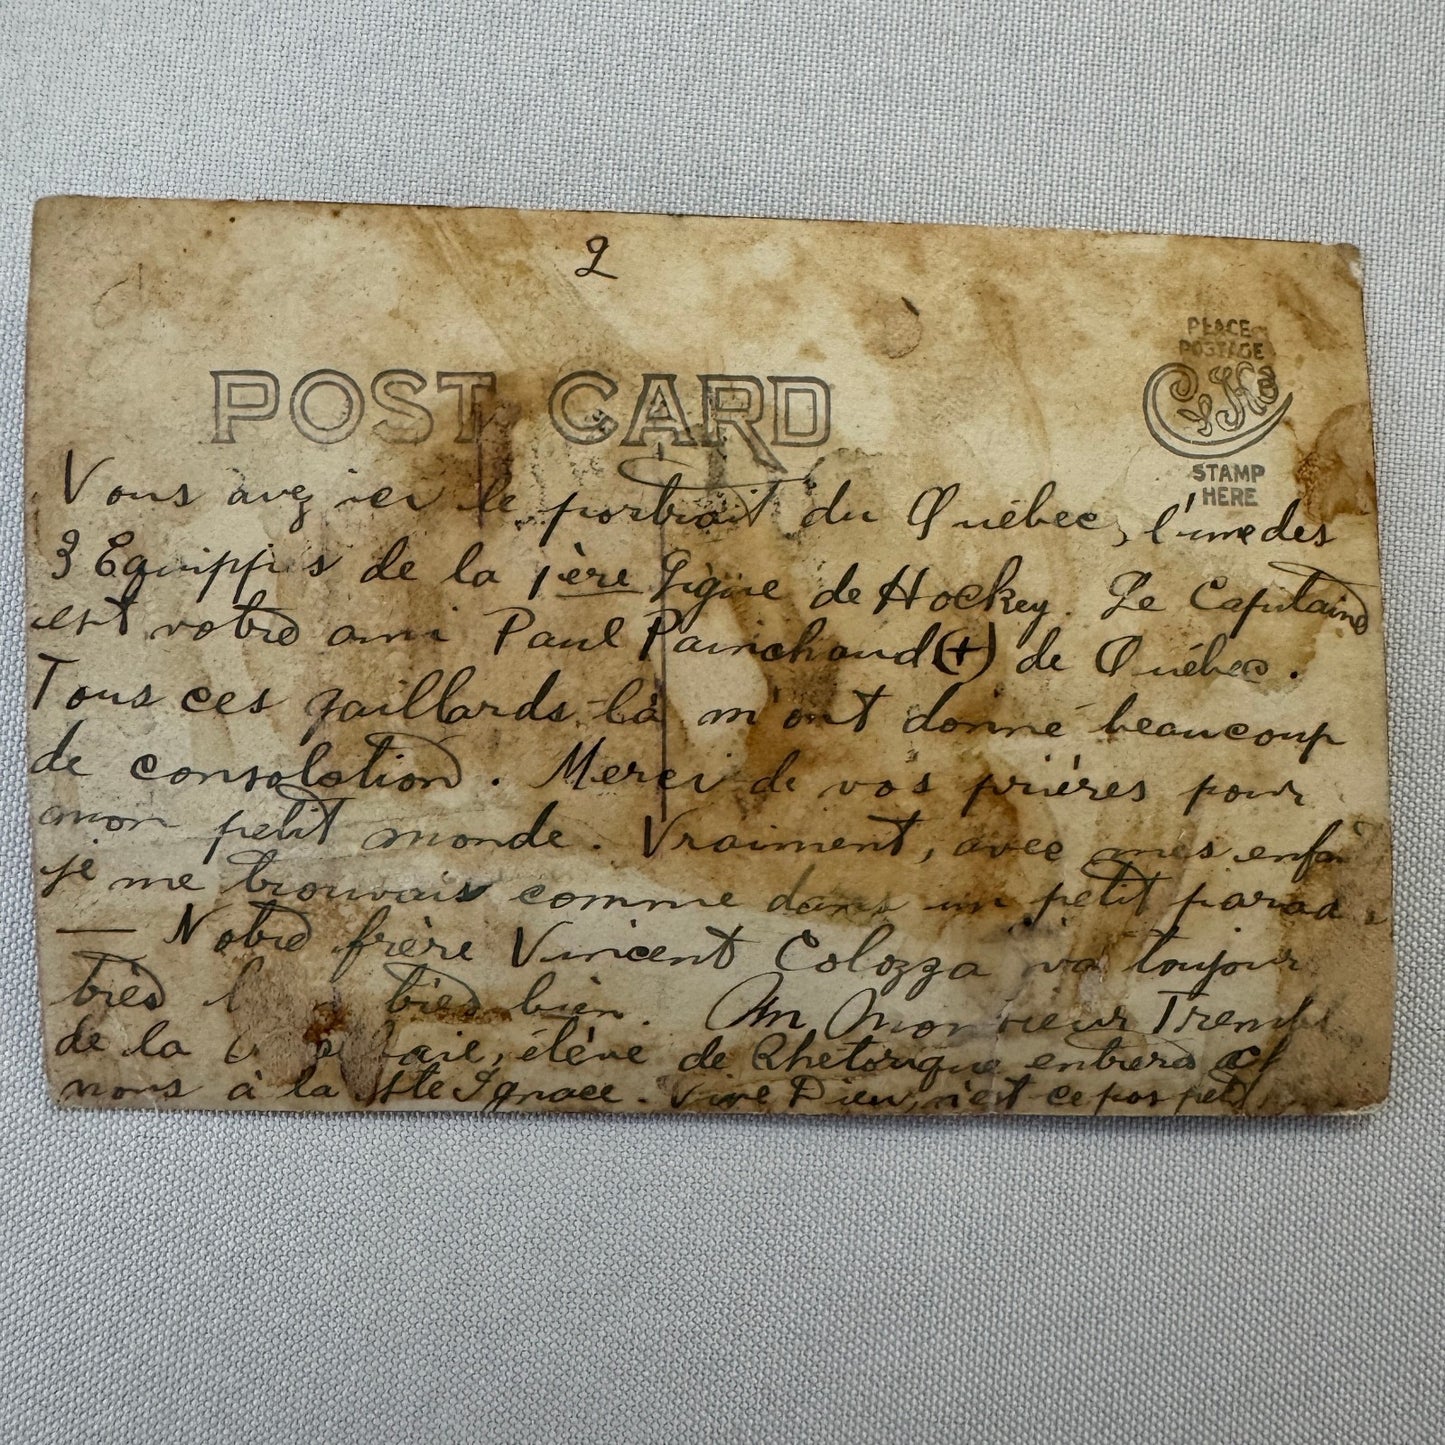 2
PLACE
POSTAGE
CYKO
STAMP
HERE
POST CARD
Vous avez ici le portrait du Québec, l'une des
3 Equippes de la 1ère Ligue de Hockey. Le Capitaine
est votre ami Paul Painchaud (+) de Québec.
Tous ces gaillards-là m'ont donné beaucoup
de consolation. Merci de vos prières pour
mon petit monde. Vraiment, avec mes enfan
je me trouvais comme dans un petit parad
— Notre frère Vincent Colozza va toujours
très très bien. Un Monsieur Trembl
de la aie, élève de Rhétorique entrera ch
nous à la Ste Ignace. Vive Dieu, n'est ce pas petit